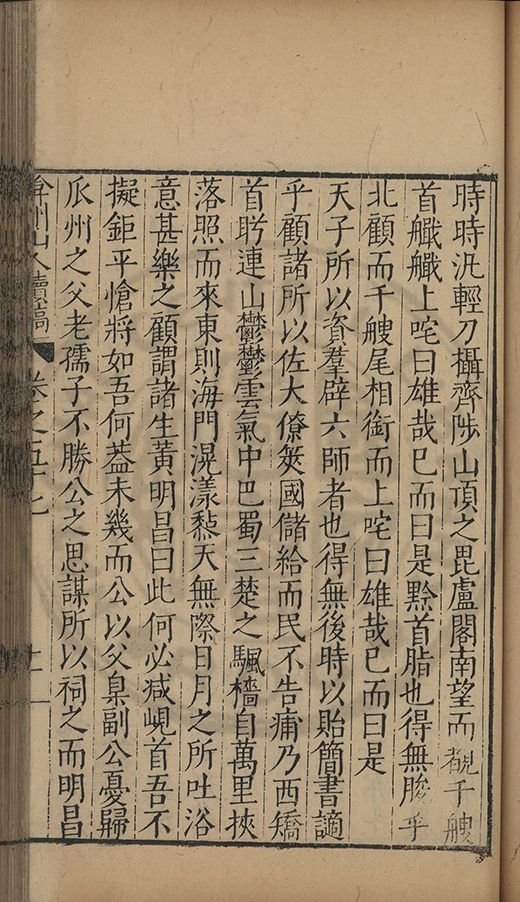 時時汎輕刀攝齊陟山頂之毘盧閣南望而覩千艘
首艤艤上咤曰雄哉已而曰是黔首脂也得無朘乎
北顧而千艘尾相銜而上咤曰雄哉已而曰是
天子所以資羣辟六師者也得無後時以貽簡書謫
乎顧諸所以佐大僚筴國儲給而民不告痡乃西矯
首盻連山鬱鬱雲氣中巴蜀三楚之颿檣自萬里挾
落照而來東則海門滉漾黏天無際日月之所吐浴
意甚樂之顧謂諸生黃明昌曰此何必減峴首吾不
擬鉅平愴將如吾何葢未幾而公以父臬副公憂歸
瓜州之父老孺子不勝公之思謀所以祠之而明昌
弇州山人續稿 卷之五十七 十一